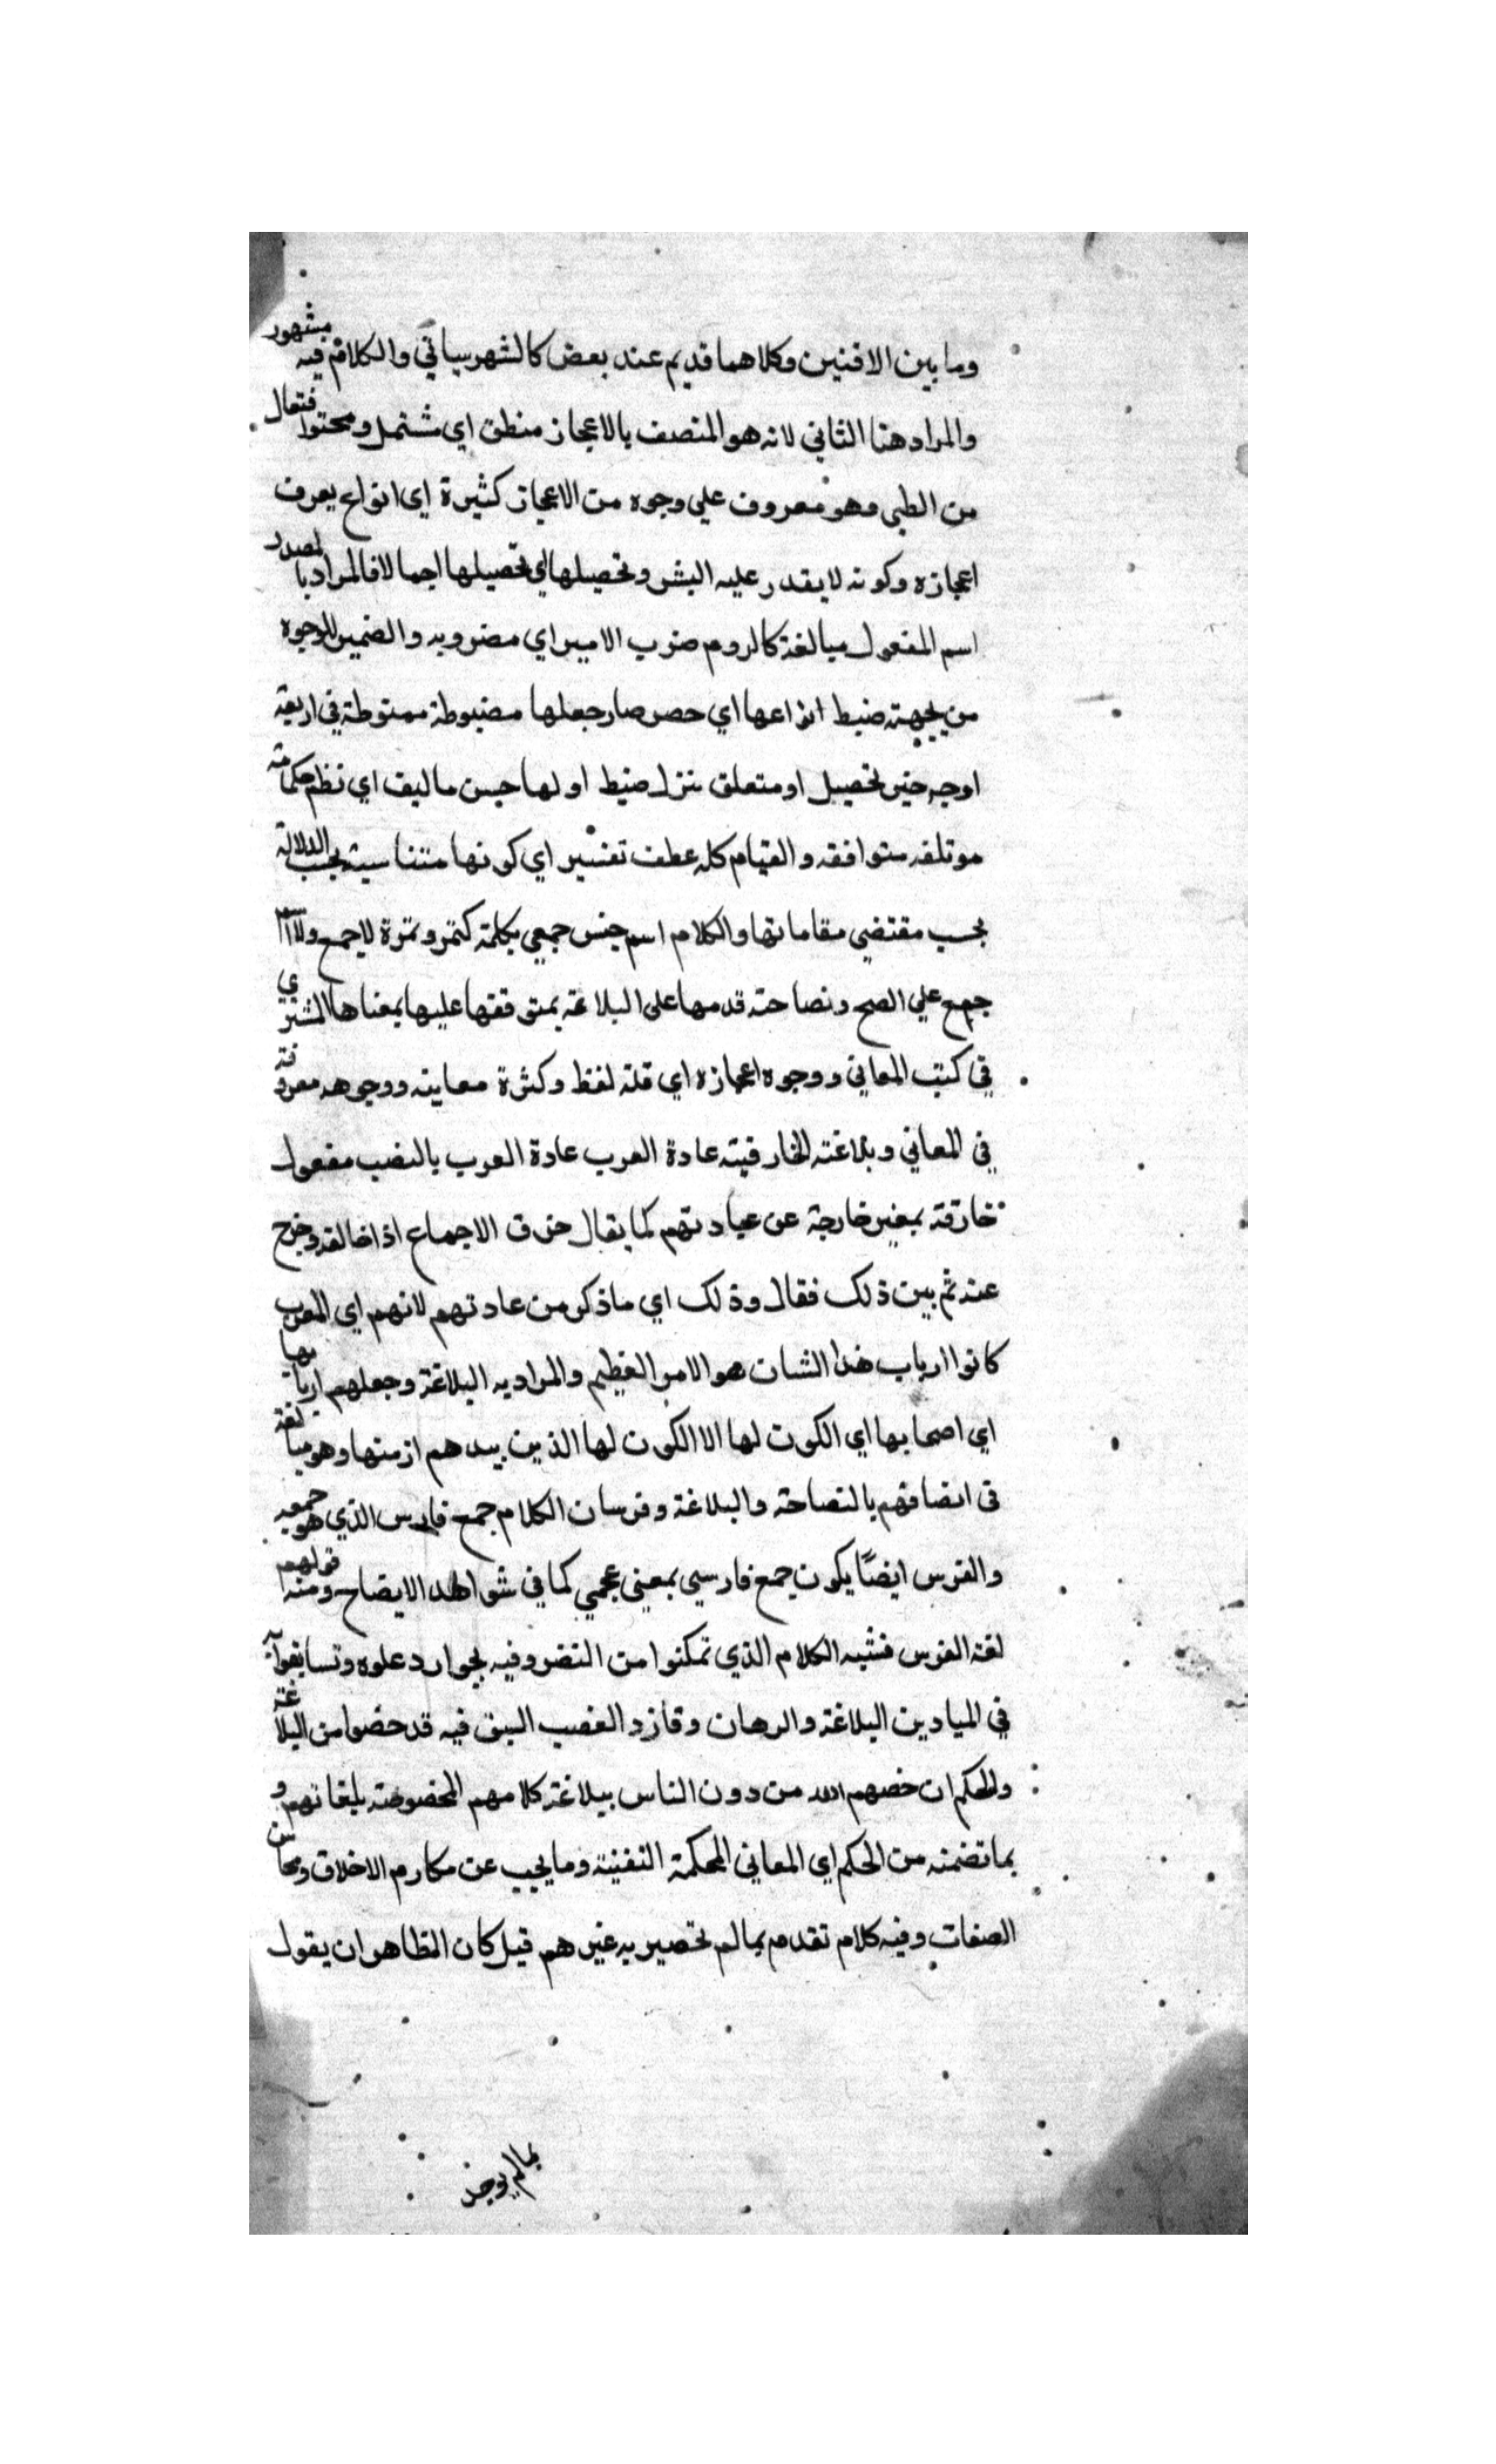 وما بين الافنين وكلاهما قديم عند بعض كالشهرسياتي والكلام فيه مشهور
والمراد هنا الثاني لانه هو المتصف بالاعجاز منطق اي شتمل ومحتوا فتعال
من الطبي وهو معروف علي وجوه من الاعجاز كثيرة اي انواع يعرف
اعجازه وكونه لا يقدر عليه البشر وتحصيلها اي تحصيلها اجمالا فالمراد بالمصدر
اسم المفعول مبالغة كالروم ضرب الامير اي مضروبه والضمير للوجوه
من جهة ضبط انواعها اي حصر صار جعلها مضبوطة منوطة في اربعة
اوجه حين تحصيل او متعلق ضبط اولها حسن ماليف اي نظم كلماته
موتلفه متوافقه والقيام كله عطف تفسير اي كونها متناسبة بحسب الدلالة
بحسب مقتضي مقاماتها والكلام اسم جنس جمعي بكلمة كتمر وتمرة لا جمع ولا اسم
جمع علي الصح ونصاحته قدمها على البلاغة بمتوقفها عليها بمعناها المشتري
في كتب المعاني ووجوه اعجازه اي قلة لفظ وكثرة معاينه ووجوهه معروفة
في المعاني وبلاغته الخارقيته عادة العرب عادة العرب بالنصب مفعول
خارقة بمعنى خارجة عن عبادتهم كما يقال خرق الاجماع اذا خالفه وخرج
عنه ثم بين ذلك فقال وذلك اي ما ذكر من عادتهم لانهم اي العرب
كانوا ارباب هذا الشان هو الامر العظيم والمراد به البلاغة وجعلهم اربابها
اي اصحابها اي الكون لها الا الكون لها الذين بيدهم ازمنها وهو مبالغة
في اتصافهم بالنصاحة والبلاغة وفرسان الكلام جمع فارس الذي هو جمعيه
والفرس ايضًا يكون جمع فارسي بمعني عجمي كما في شواهد الايضاح ومنه قولهم
لغة الفرس فشبه الكلام الذي تمكنوا من التضروفيه بجوارد علوه وتسابقوا
في الميادين البلاغة والرهان وقازد الغصب السبق فيه قد خصوا من البلاغة
والحكم ان خصهم الله من دون الناس ببلاغة كلامهم المخصوصة بلغاتهم و
بما تضمنه من الحكم اي المعاني المحكمة النفنية وما يجيب عن مكارم الاخلاق ومحاسن
الصفات وفيه كلام تقدم بما لم تحصير به غيرهم قيل كان الظاهر ان يقول
بما لم يوجد